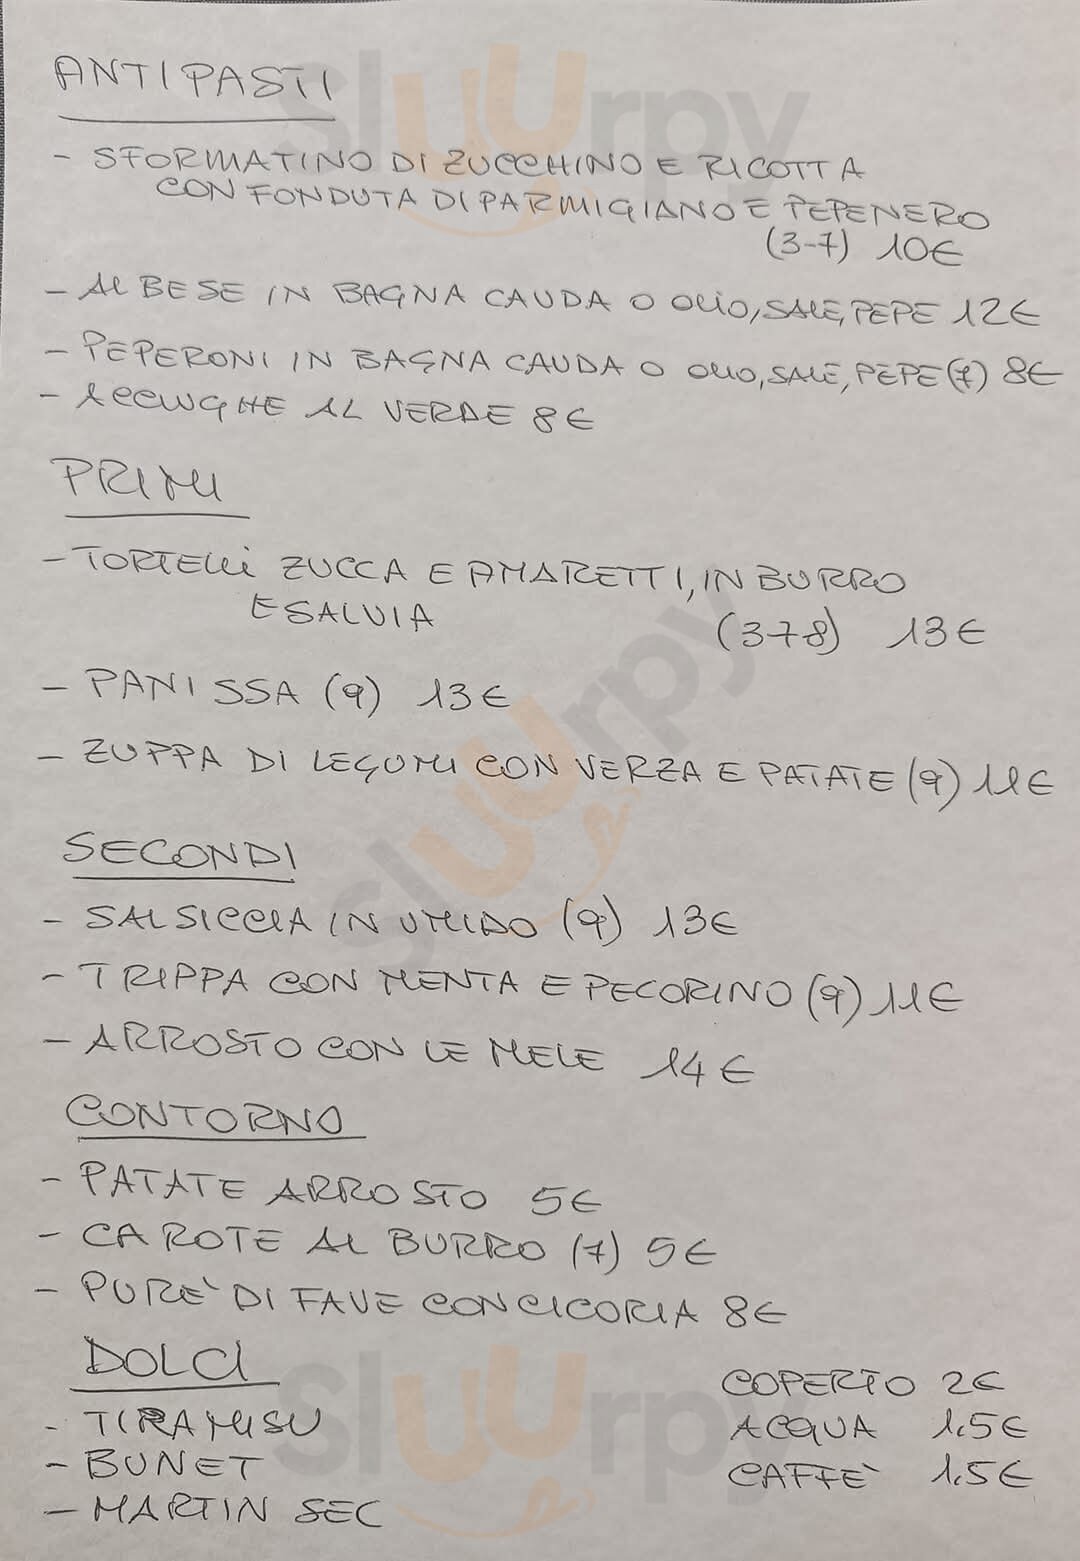 ANTIPASTI
- SFORMATINO DI ZUCCHINO E RICOTTA
CON FONDUTA DI PARMIGIANO E PEPE NERO
(3-7) 10€
- ALBESE IN BAGNA CAUDA O OLIO, SALE, PEPE 12€
- PEPERONI IN BAGNA CAUDA O OLIO, SALE, PEPE (7) 8€
- ACCIUGHE AL VERDE 8€
PRIMI
- TORTELLI ZUCCA E AMARETTI, IN BURRO
E SALVIA (3-7-8) 13€
- PANISSA (9) 13€
- ZUPPA DI LEGUMI CON VERZA E PATATE (9) 11€
SECONDI
- SALSICCIA IN UMIDO (9) 13€
- TRIPPA CON MENTA E PECORINO (9) 11€
- ARROSTO CON LE MELE 14€
CONTORNO
- PATATE ARROSTO 5€
- CAROTE AL BURRO (7) 5€
- PURE' DI FAVE CON CICORIA 8€
DOLCI
- TIRAMISU
- BUNET
- MARTIN SEC
COPERTO 2€
ACQUA 1.5€
CAFFE' 1.5€
Sluurpy
Sluurpy
Sluurpy